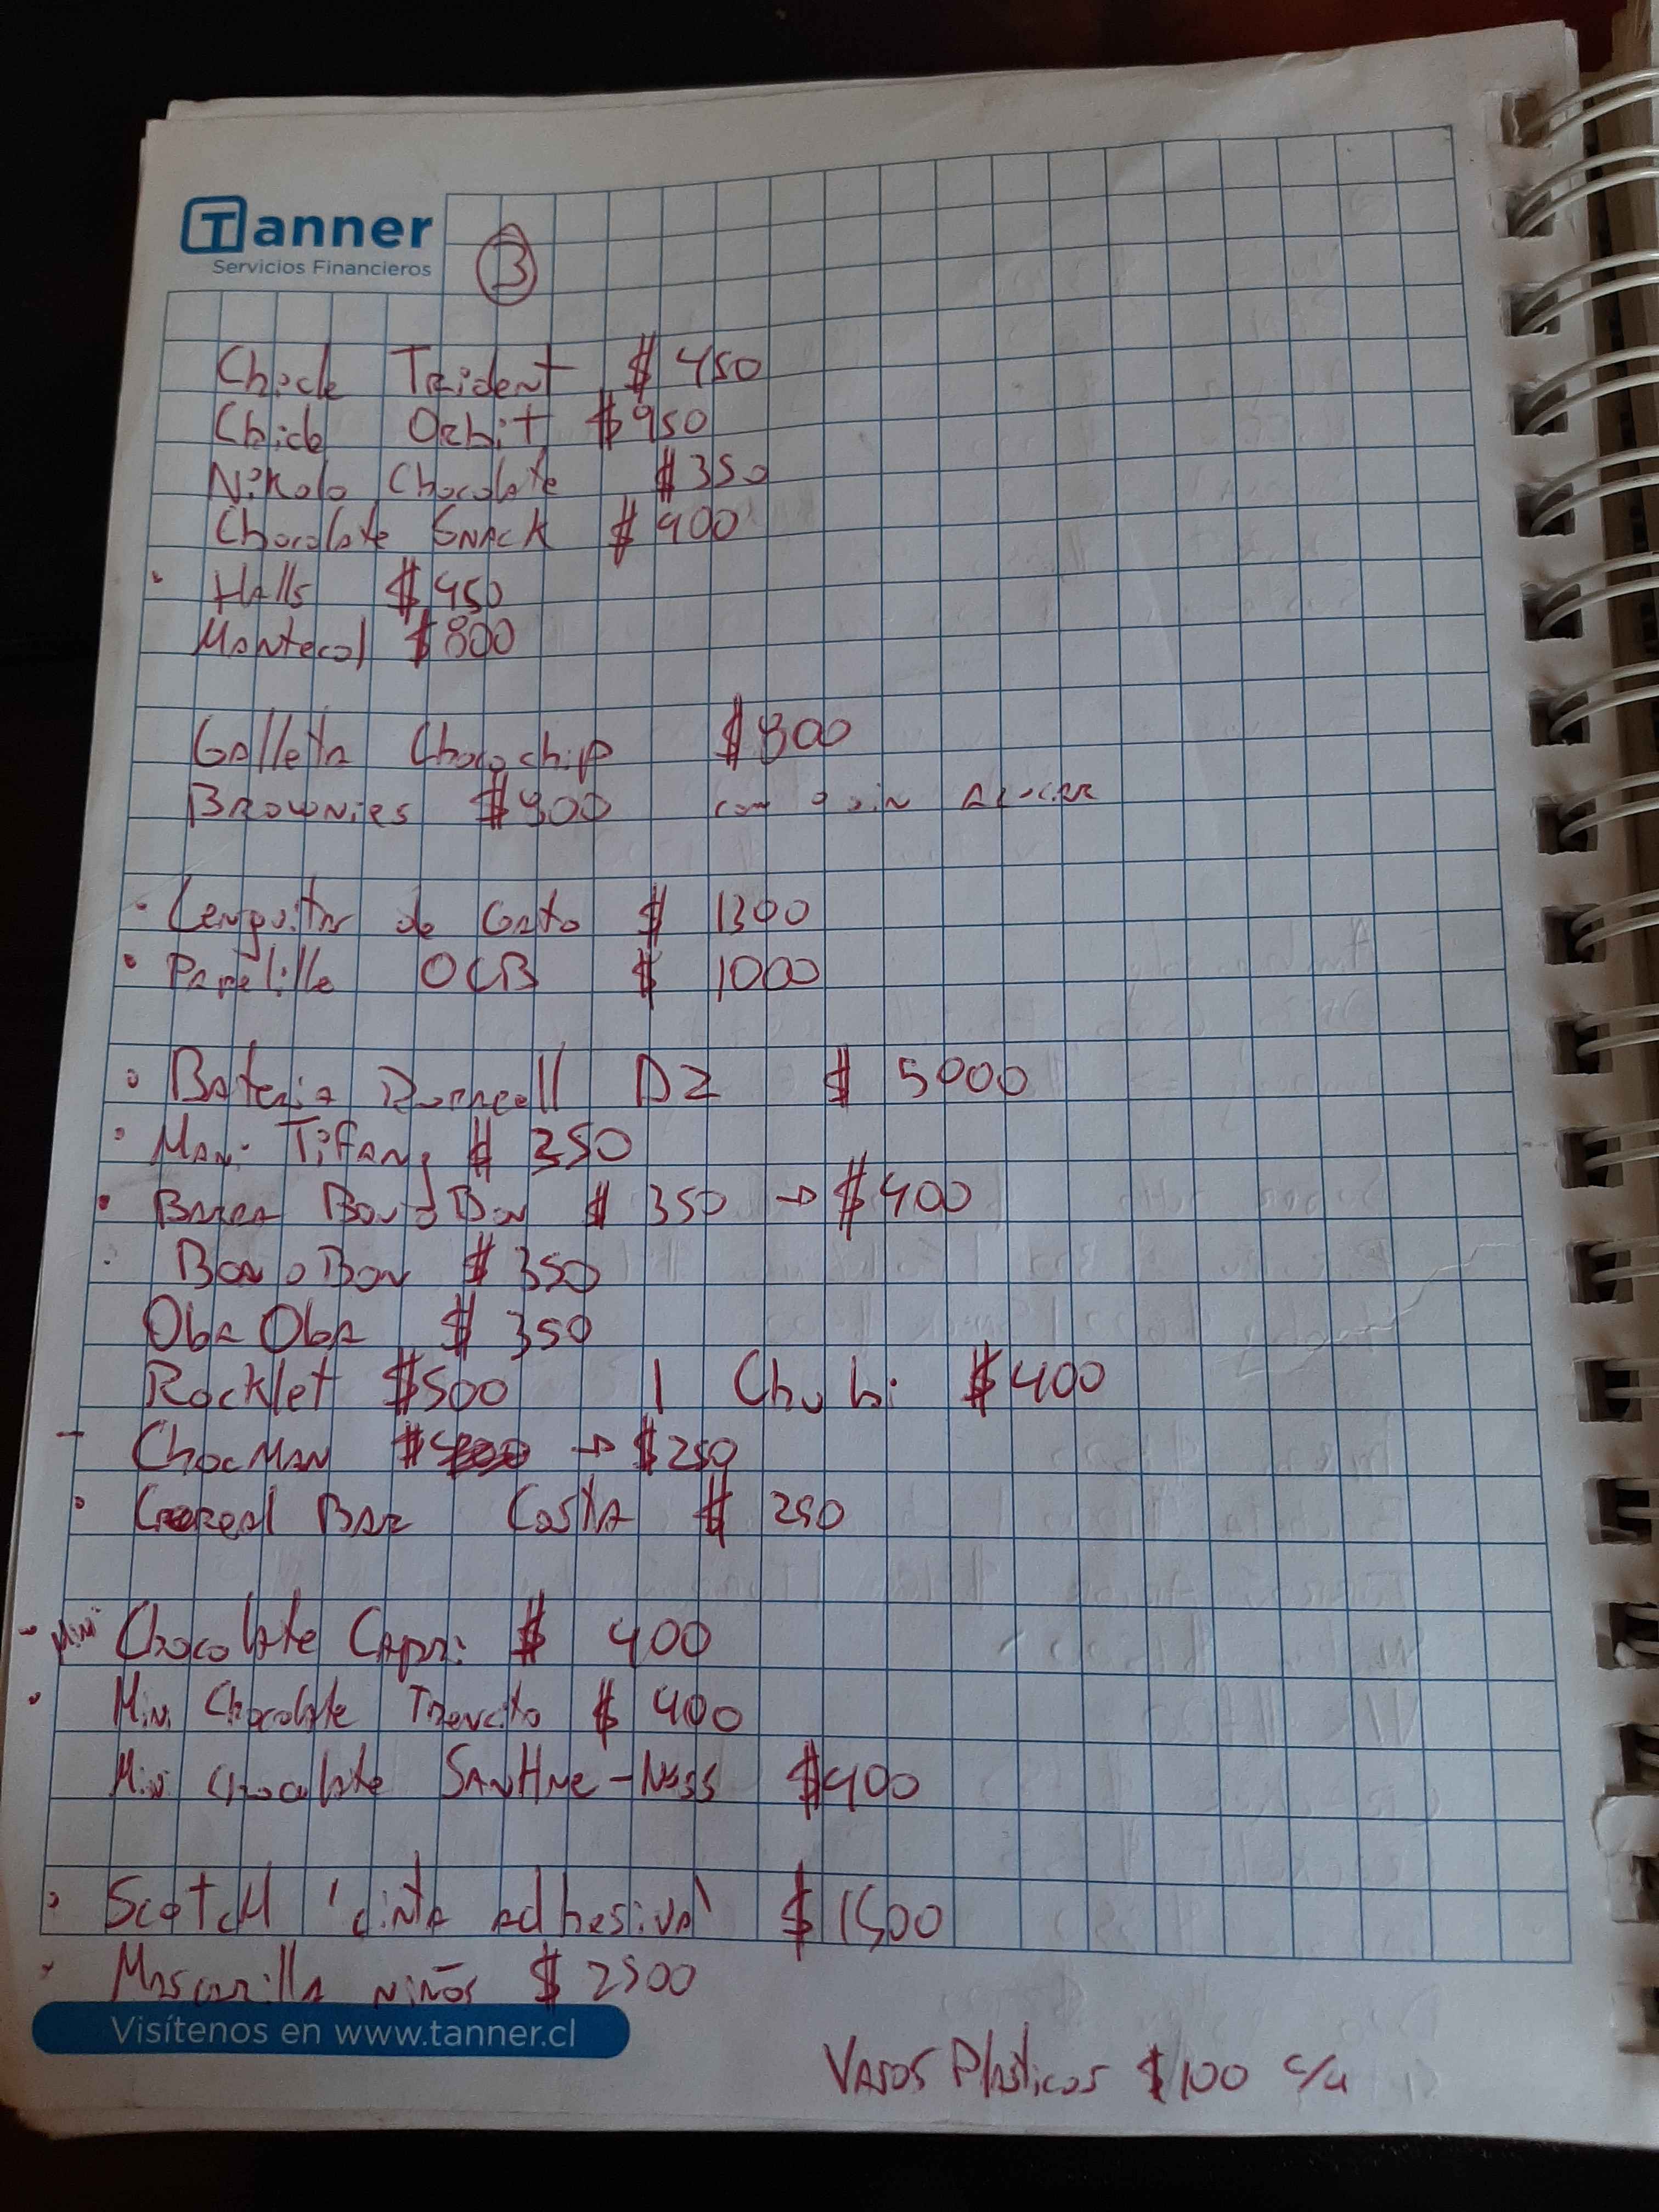 Tanner
Servicios Financieros
3
Chicle Trident $450
Chicle Orbit $950
Nikolo Chocolate $350
Chocolate Snack $400
• Halls $450
Mantecol $800
Galleta Chocochip $800
Brownies $900 con o sin Azucar
• Lenguitas de Gato $ 1300
• Papelillo OCB $ 1000
• Bateria Duracell D2 $ 5000
• Mani Tifany $ 350
• Barra Bon o Bon $ 350 → $400
Bon o Bon $ 350
Oba Oba $ 350
Rocklet $500 | Chubi $400
- ChocMan → $250
• Cereal Bar Costa $ 250
- Mini Chocolate Capri $ 400
• Mini Chocolate Trencito $ 400
Mini Chocolate Sanhne-Nuss $400
• Scotch 'cinta adhesiva' $ 1500
• Mascarilla niños $ 2500
Visítenos en www.tanner.cl
Vasos Plasticos $100 c/u